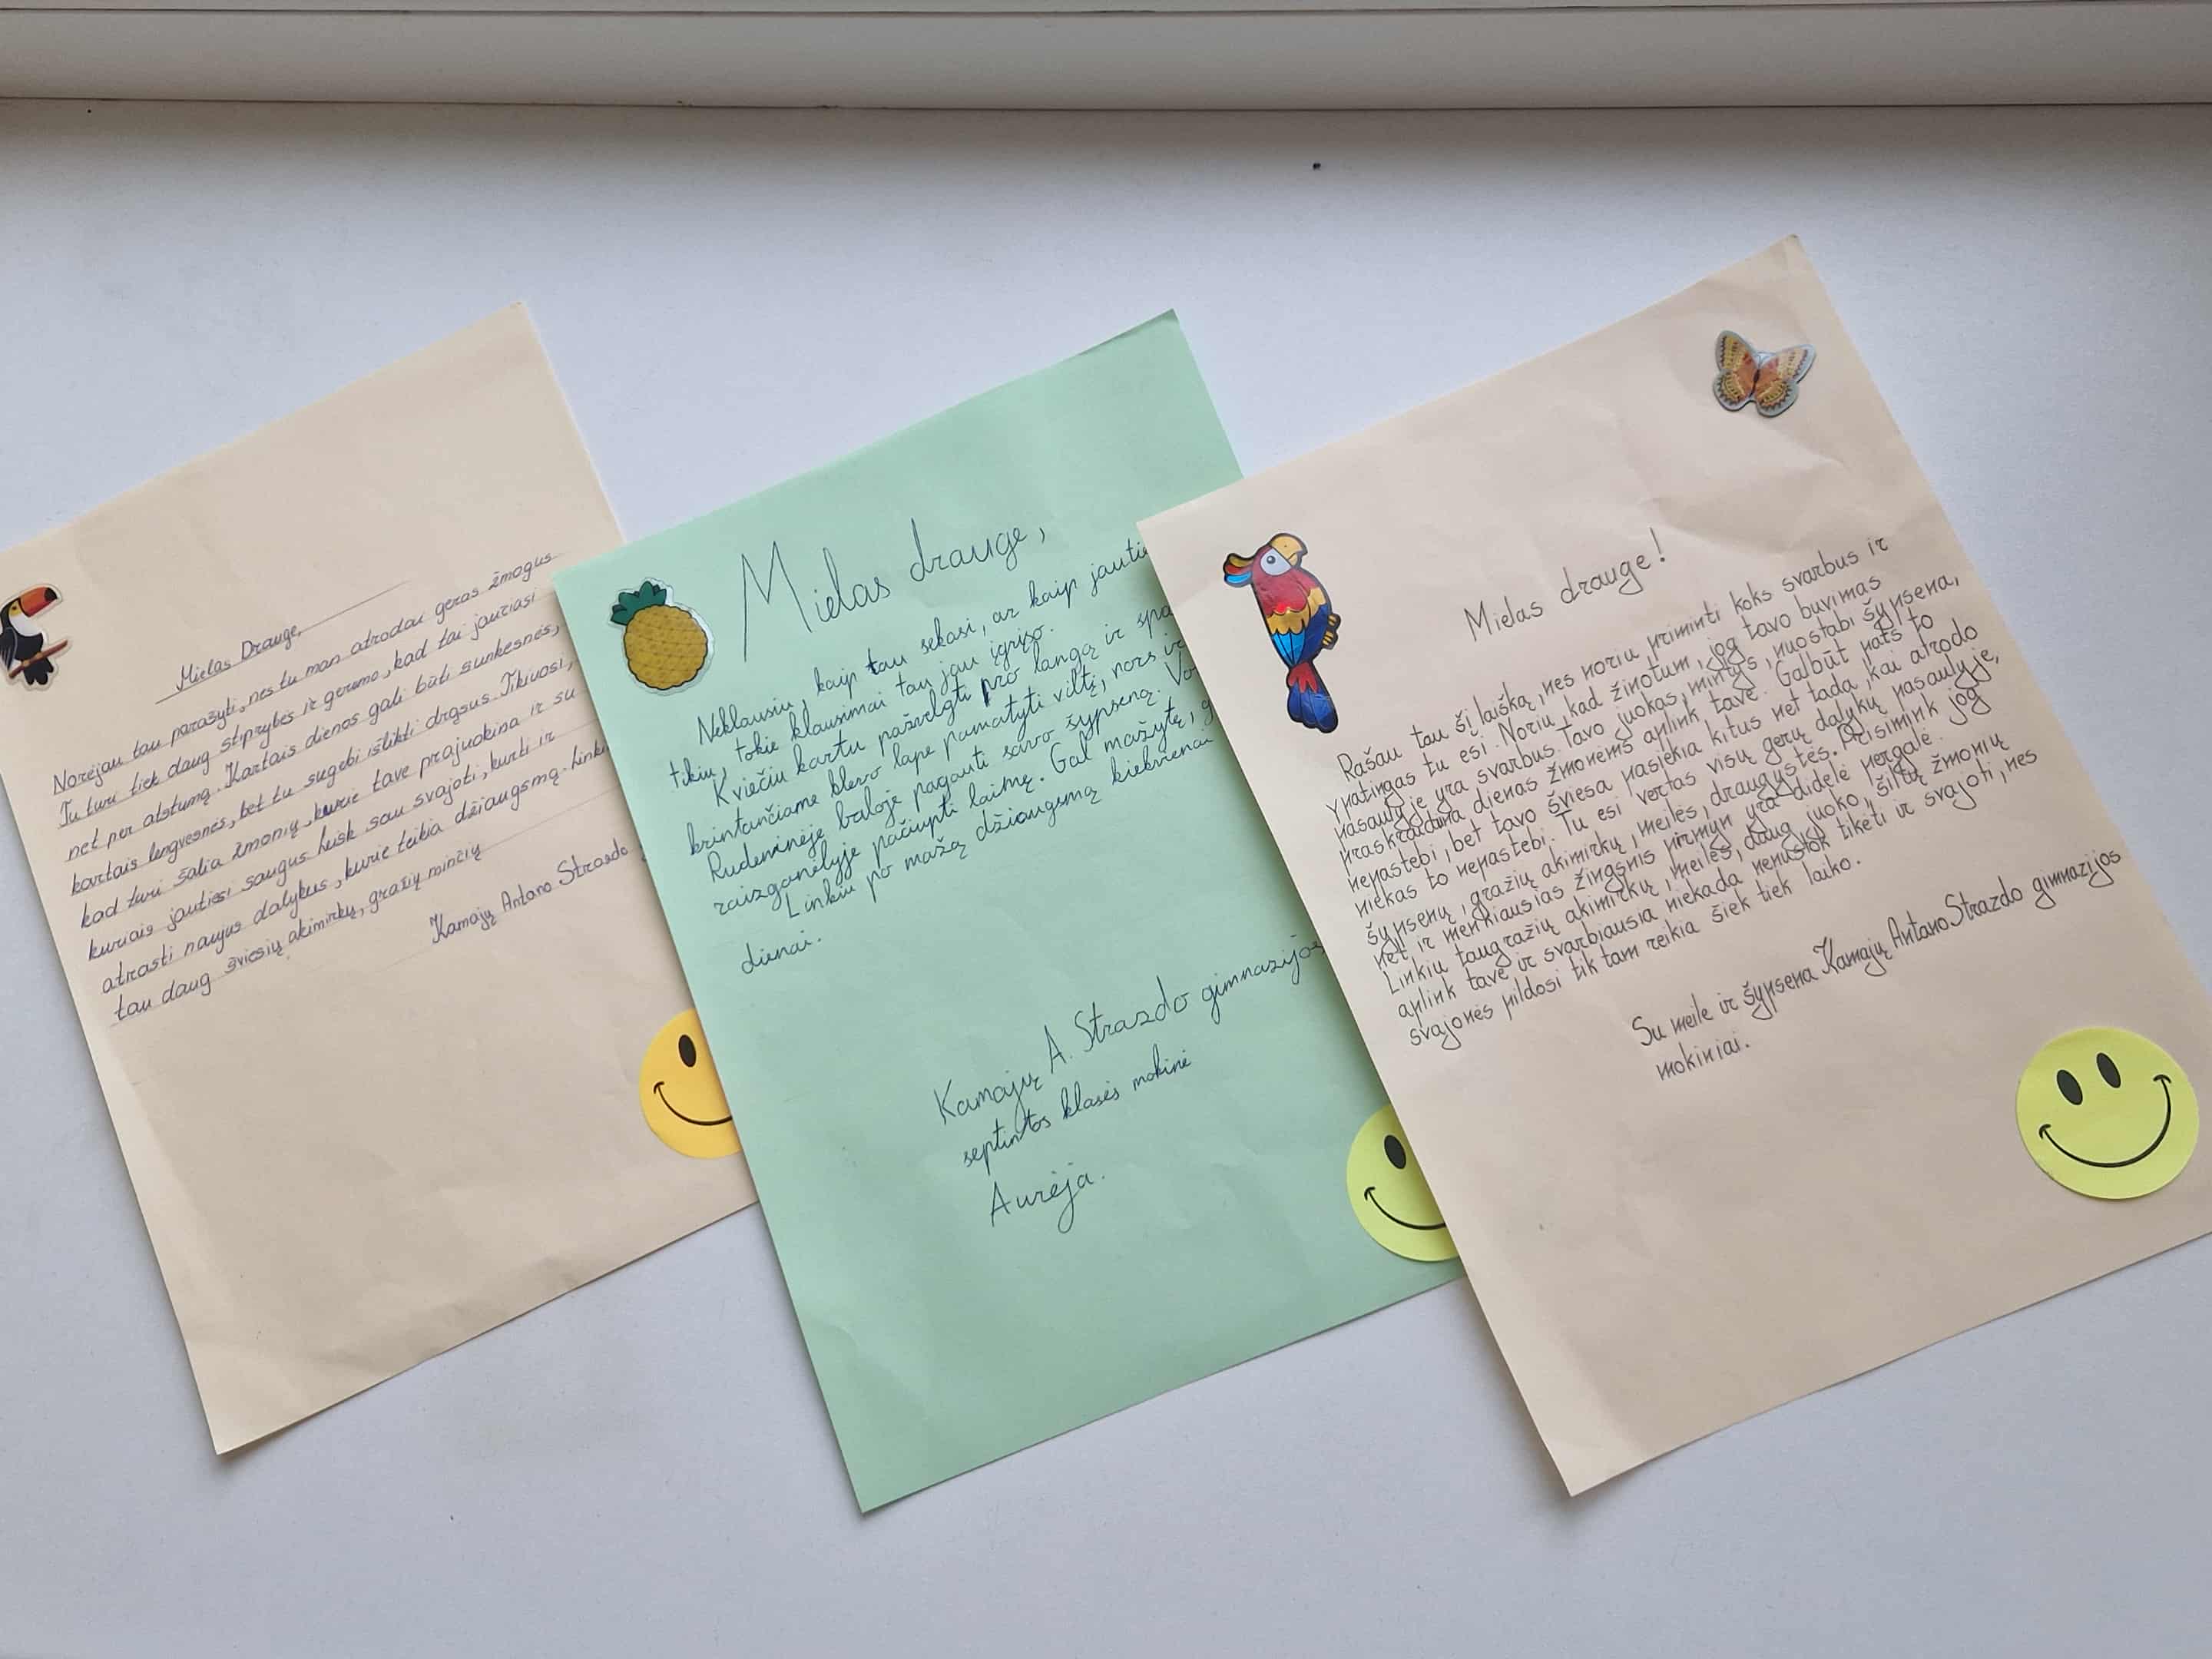 Mielas Drauge,
Norėjau tau parašyti, nes tu man atrodai geras žmogus
Tu turi tiek daug stiprybės ir gerumo, kad tai jaučiasi
net per atstumą. Kartais dienos gali būti sunkesnės,
kartais lengvesnės, bet tu sugebi išlikti drąsus. Tikiuosi,
kad turi šalia žmonių, kurie tave prajuokina ir su
kuriais jautiesi saugus leisk sau svajoti, kurti ir
atrasti naujus dalykus, kurie teikia džiaugsmą. Linki
tau daug šviesių akimirkų, gražių minčių
Kamajų Antano Strazdo
Mielas drauge,
Neklausiu, kaip tau sekasi, ar kaip jautie
tikiu, tokie klausimai tau jau įgriso.
Kviečiu kartu pažvelgti pro langą ir spa
krintančiame klevo lape pamatyti viltį, nors ir
Rudeninėje baloje pagauti savo šypseną. Vo
raizgenėlyje pačiupti laimę. Gal mažytę, g
Linkiu po mažą džiaugsmą kiekvienai
dienai.
Kamajų A. Strazdo gimnazijos
septintos klasės mokinė
Aurėja.
Mielas drauge!
Rašau tau šį laišką, nes noriu priminti koks svarbus ir
ypatingas tu esi. Noriu kad žinotum, jog tavo buvimas
pasaulyje yra svarbus. Tavo juokas, mintys, nuostabi šypsena,
praskaidrina dienas žmonėms aplink tave. Galbūt pats to
nepastebi, bet tavo šviesa pasiekia kitus net tada, kai atrodo
niekas to nepastebi. Tu esi vertas visų gerų dalykų pasaulyje,
šypsenų, gražių akimirkų, meilės, draugystės. Prisimink jog
net ir menkiausias žingsnis pirmyn yra didelė pergalė.
Linkiu tau gražių akimirkų, meilės, daug juoko, šiltų žmonių
aplink tave ir svarbiausia niekada nenustok tikėti ir svajoti, nes
svajonės pildosi tik tam reikia šiek tiek laiko.
Su meile ir šypsena Kamajų Antano Strazdo gimnazijos
mokiniai.